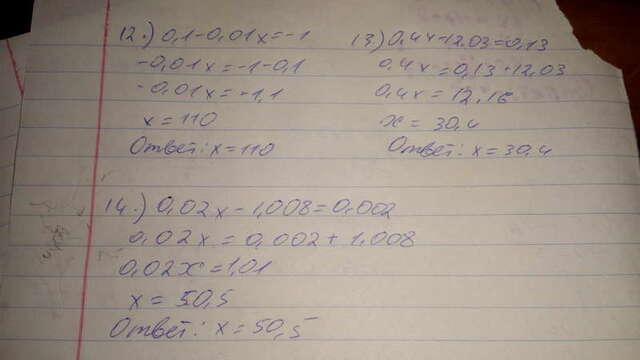 12.) 0,1-0,01x=-1
-0,01x=-1-0,1
-0,01x=-1,1
x=110
Ответ: x=110
13.) 0,4x-12,03=0,13
0,4x=0,13+12,03
0,4x=12,16
x=30,4
Ответ: x=30,4
14.) 0,02x-1,008=0,002
0,02x=0,002+1,008
0,02x=1,01
x=50,5
Ответ: x=50,5